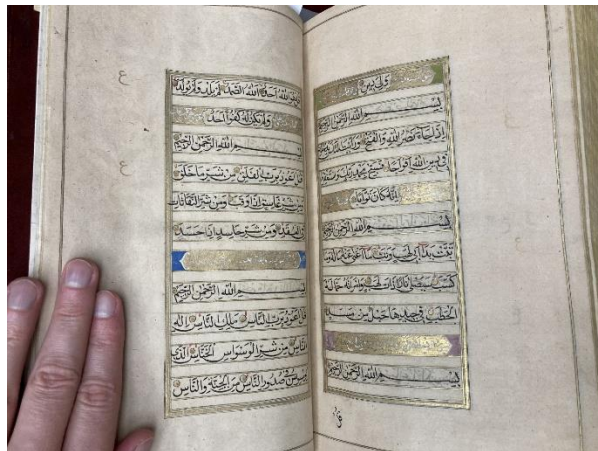 ولي دين
بسم الله الرحمن الرحيم
إذا جاء نصر الله والفتح ورأيت الناس يدخلون
في دين الله أفواجا فسبح بحمد ربك واستغفره
إنه كان توابا
بسم الله الرحمن الرحيم
تبت يدا أبي لهب وتب ما أغنى عنه ماله وما
كسب سيصلى نارا ذات لهب وامرأته حمالة
الحطب في جيدها حبل من مسد
بسم الله الرحمن الرحيم
قل
قل هو الله أحد الله الصمد لم يلد ولم يولد
ولم يكن له كفوا أحد
بسم الله الرحمن الرحيم
قل أعوذ برب الفلق من شر ما خلق
ومن شر غاسق إذا وقب ومن شر النفاثات
في العقد ومن شر حاسد إذا حسد
بسم الله الرحمن الرحيم
قل أعوذ برب الناس ملك الناس إله
الناس من شر الوسواس الخناس الذي
يوسوس في صدور الناس من الجنة والناس
ع
ع
ع